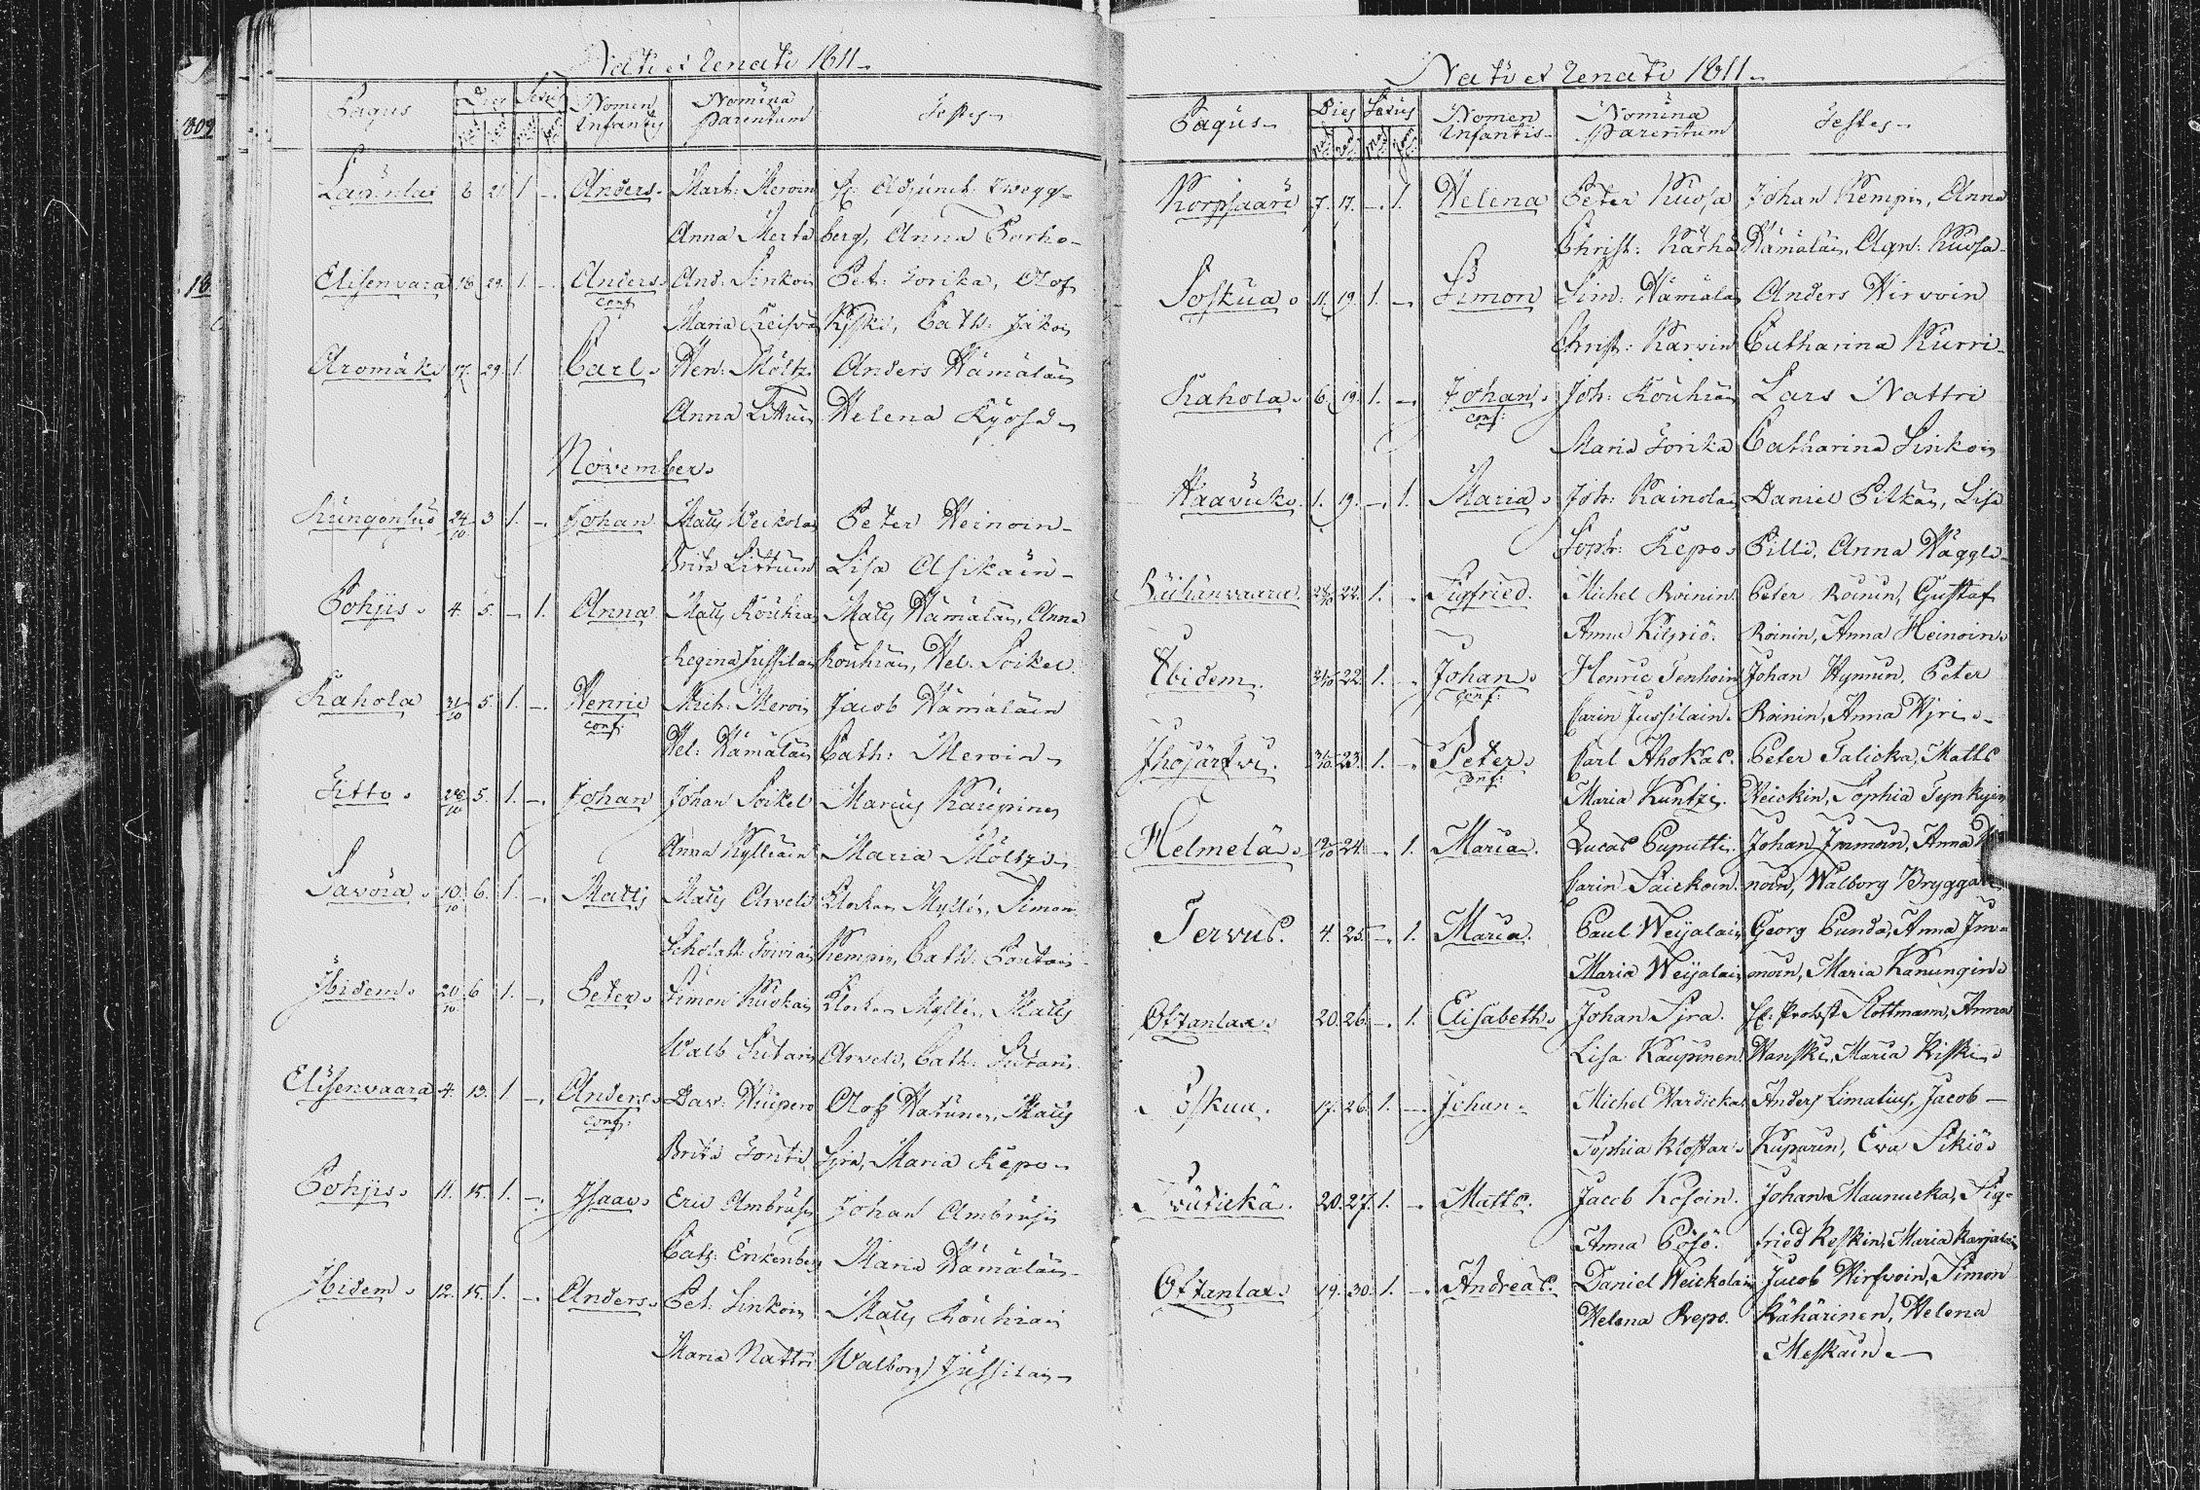 Nati et Renati 1811
Pagus Dies Sexus Nomen Infantis Nomina Parentum Testes
8 21 1 - Anders Mart: Meroin H: Adjunct: Zwegg
Anna berg, Anna Torho
Elisenvaara 18 29 1 - Anders And: Sinkoin Pet: Torika, Olof
conf Maria Kiiski, Cath:
Aromäki 17 29 1 Carl Hen: Möltz Anders Hämäläin
Anna Littuin Helena Kyösä
November
24/10 3 1 - Johan Matts Weikolai Peter Heinoin
Brita Littuin Lisa Asikain
Pohjis 4 5 - 1 Anna Matts Rouhiai Matts Hämäläin, Anna
Regina Jussilai Rouhiain, Hel: Soikel
Rahola 31/10 5 1 - Henric Mich: Meroin Jacob Hämäläin
conf: Hel: Hämäläin Cath: Meroin
Titto 28/10 5 1 - Johan Johan Soikel Marcus Kaupinen
Anna Kylliäin Maria Möltz
Savoia 10/10 6 1 - Matts Matts Arveld Klockar Myllén, Simon
Scholast: Toiviain Kempin, Cath: Pontain
Ibidem 20/10 6 1 - Peter Simon Ruokain Klockar Myllén, Matts
Walb: Sutarin Arveld, Cath: Sutarin
Elisenvaara 4 13 1 - Anders Dav: Olof Matts
conf: Brita Sonti Syrä, Maria Repo
Pohjis 11 15 1 - Isaac Eric Ambrusin Johan Ambrusin
Cath: Enkenberg Maria Hämäläin
Ibidem 12 15 1 - Anders Pet: Sinkoin Matts Rouhiain
Maria Nattri Walborg Jussilain
Nati et Renati 1811
Pagus Dies Sexus Nomen Infantis Nomina Parentum Testes
Korpsaari 7 17 - 1 Helena Peter Kuosa Johan Kempin, Anna
Christ: Kärhä Hämäläin, Agn: Kuosa
Soskua 11 19 1 - Simon Sim: Hämäläi Anders Hirvoin
Christ: Karvin Catharina Kurri
Rahola 6 19 1 - Johan Joh: Rouhiai Lars Nattri
conf: Maria Torika Catharina Sinkoin
1 19 - 1 Maria Joh: Kainolai Daniel Pitkän, Lisa
Soph: Repo Pilli, Anna Häggli
28/10 22 1 - Sigfried Michel Roinin Peter Roinin, Gustaf
Anna Kilpiö Roinin, Anna Heinoin
Ibidem 31/10 22 1 - Johan Henric Tenhoin Johan Hynnin, Peter
conf: Carin Jussilain Roinin, Anna
Ihojärfvi 31/10 23 1 - Peter Carl Ahokas Peter Talicka, Matts
conf: Maria Kuntzi Weickin, Sophia Tynkyin
Helmelä 19/10 24 - 1 Maria Lucas Puputti Johan Immoin, Anna
Carin Säickoin noin, Walborg Bryggare
Tervus 4 25 - 1 Maria Paul Weijalain Georg Punda, Anna Im=
Maria Weijalain moin, Maria Kanungin
Ottanlax 20 26 - 1 Elisabeth Johan Syrä H: Probst Slottmann, Anna
Lisa Kaupinen Hanski, Maria Kiskin
Soskua 17 26 1 - Johan Michel Hardicka Anders Limatius, Jacob
Sophia Klostar Kuparin, Eva Sikiö
20 27 1 - Matts Jacob Kosoin Johan Maunucka, Sig=
Anna Pösö fried Keskin, Maria Karjalain
Ottanlax 19 30 1 - Andreas Daniel Weickolain Jacob Hirfvoin, Simon
Helena Repo Kähärinen, Helena
Meskain